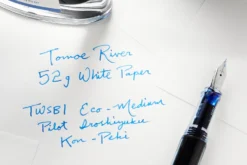 Tomoe River
52g White Paper
TWSBI Eco - Medium
Pilot Iroshizuku
Kon - Peki